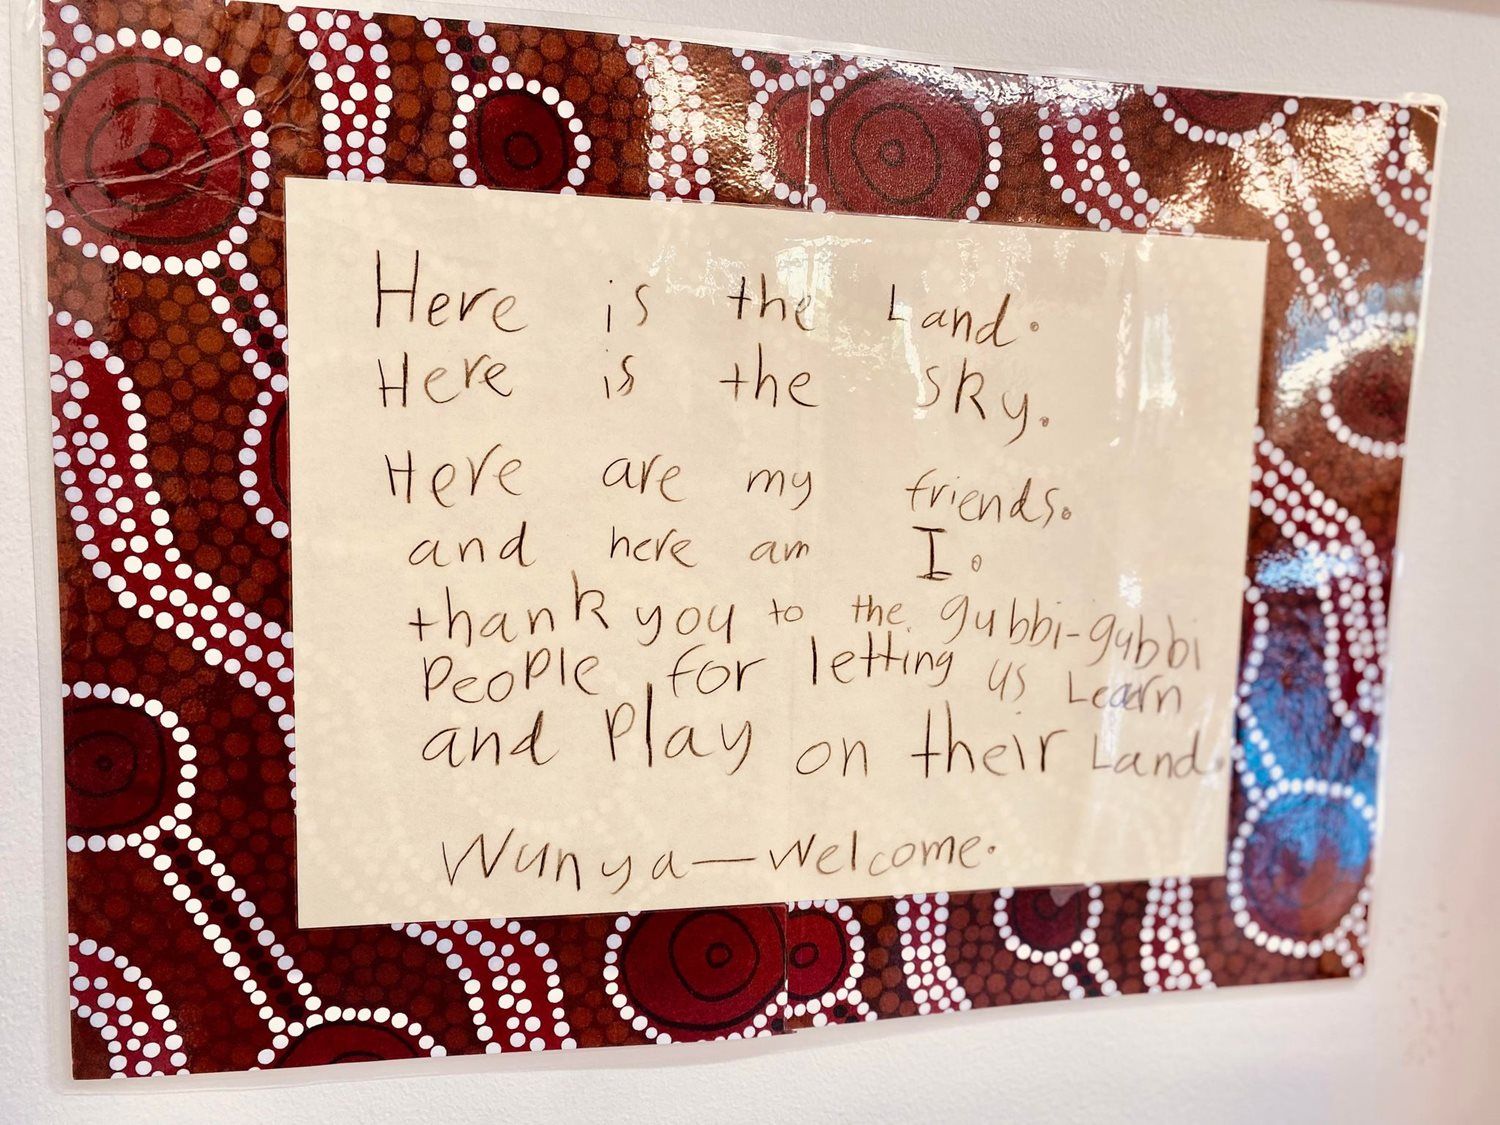 Here is the Land.
Here is the sky.
Here are my friends.
and here am I.
thank you to the gubbi-gubbi
People for letting us Learn
and Play on their Land.
Wunya—Welcome.